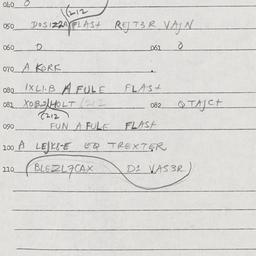 060 0
(212
050 DOSIZZA FLASt REJT3R VAJN
060 0 061 0
070 A KORK
080 IXLI.B A FULE FLASt
081 XOB2/HOLT (212 082 QTAJCt
(212
090 FUN A FULE FLASt
100 A EQ TREXTER
110 BLEZL7CAX D1 VAS3R